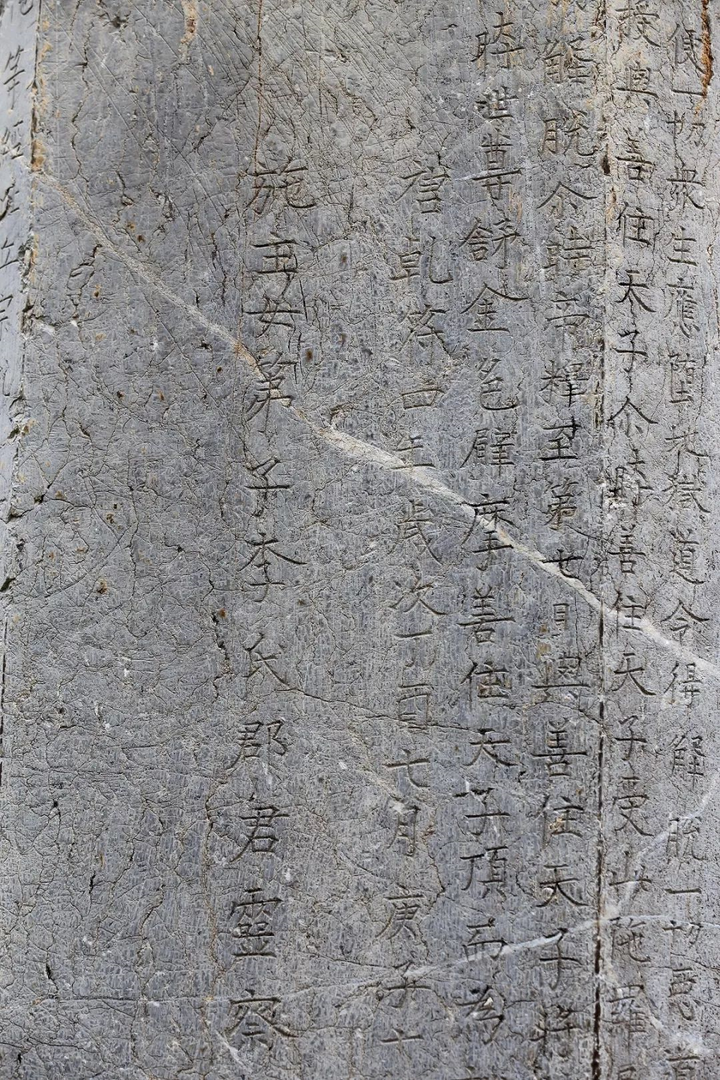 一切衆生應墮地獄道令得解脫一切惡
授與善住天子尒時善住天子受此陁羅
解脫尒時帝釋至第七日與善住天子將
時世尊舒金色臂摩善住天子頂而為
唐乾符四年歲次丁酉七月庚子
施主女弟子李氏郡君靈